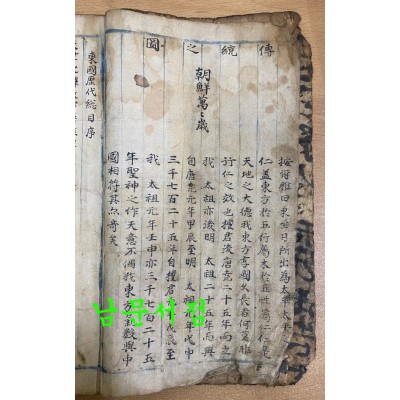 傳統之圖
朝鮮萬〻歲
按爾雅曰東至日所出為太平太平
仁盖東方於五行属木於五性為仁仁是
天地之大德我東方享國久長者何莫非
行仁之效也檀君後唐堯二十五年而立
我 太祖亦後明 太祖二十五年而興
自唐堯元年甲辰至明 太祖元年戊申
三千七百二十五年自檀君元年戊辰至
我 太祖元年壬申亦三千七百二十五
年聖神之作天意不偶我東方氣數與中
國相符其亦奇矣
東國歷代總目序
남문서점